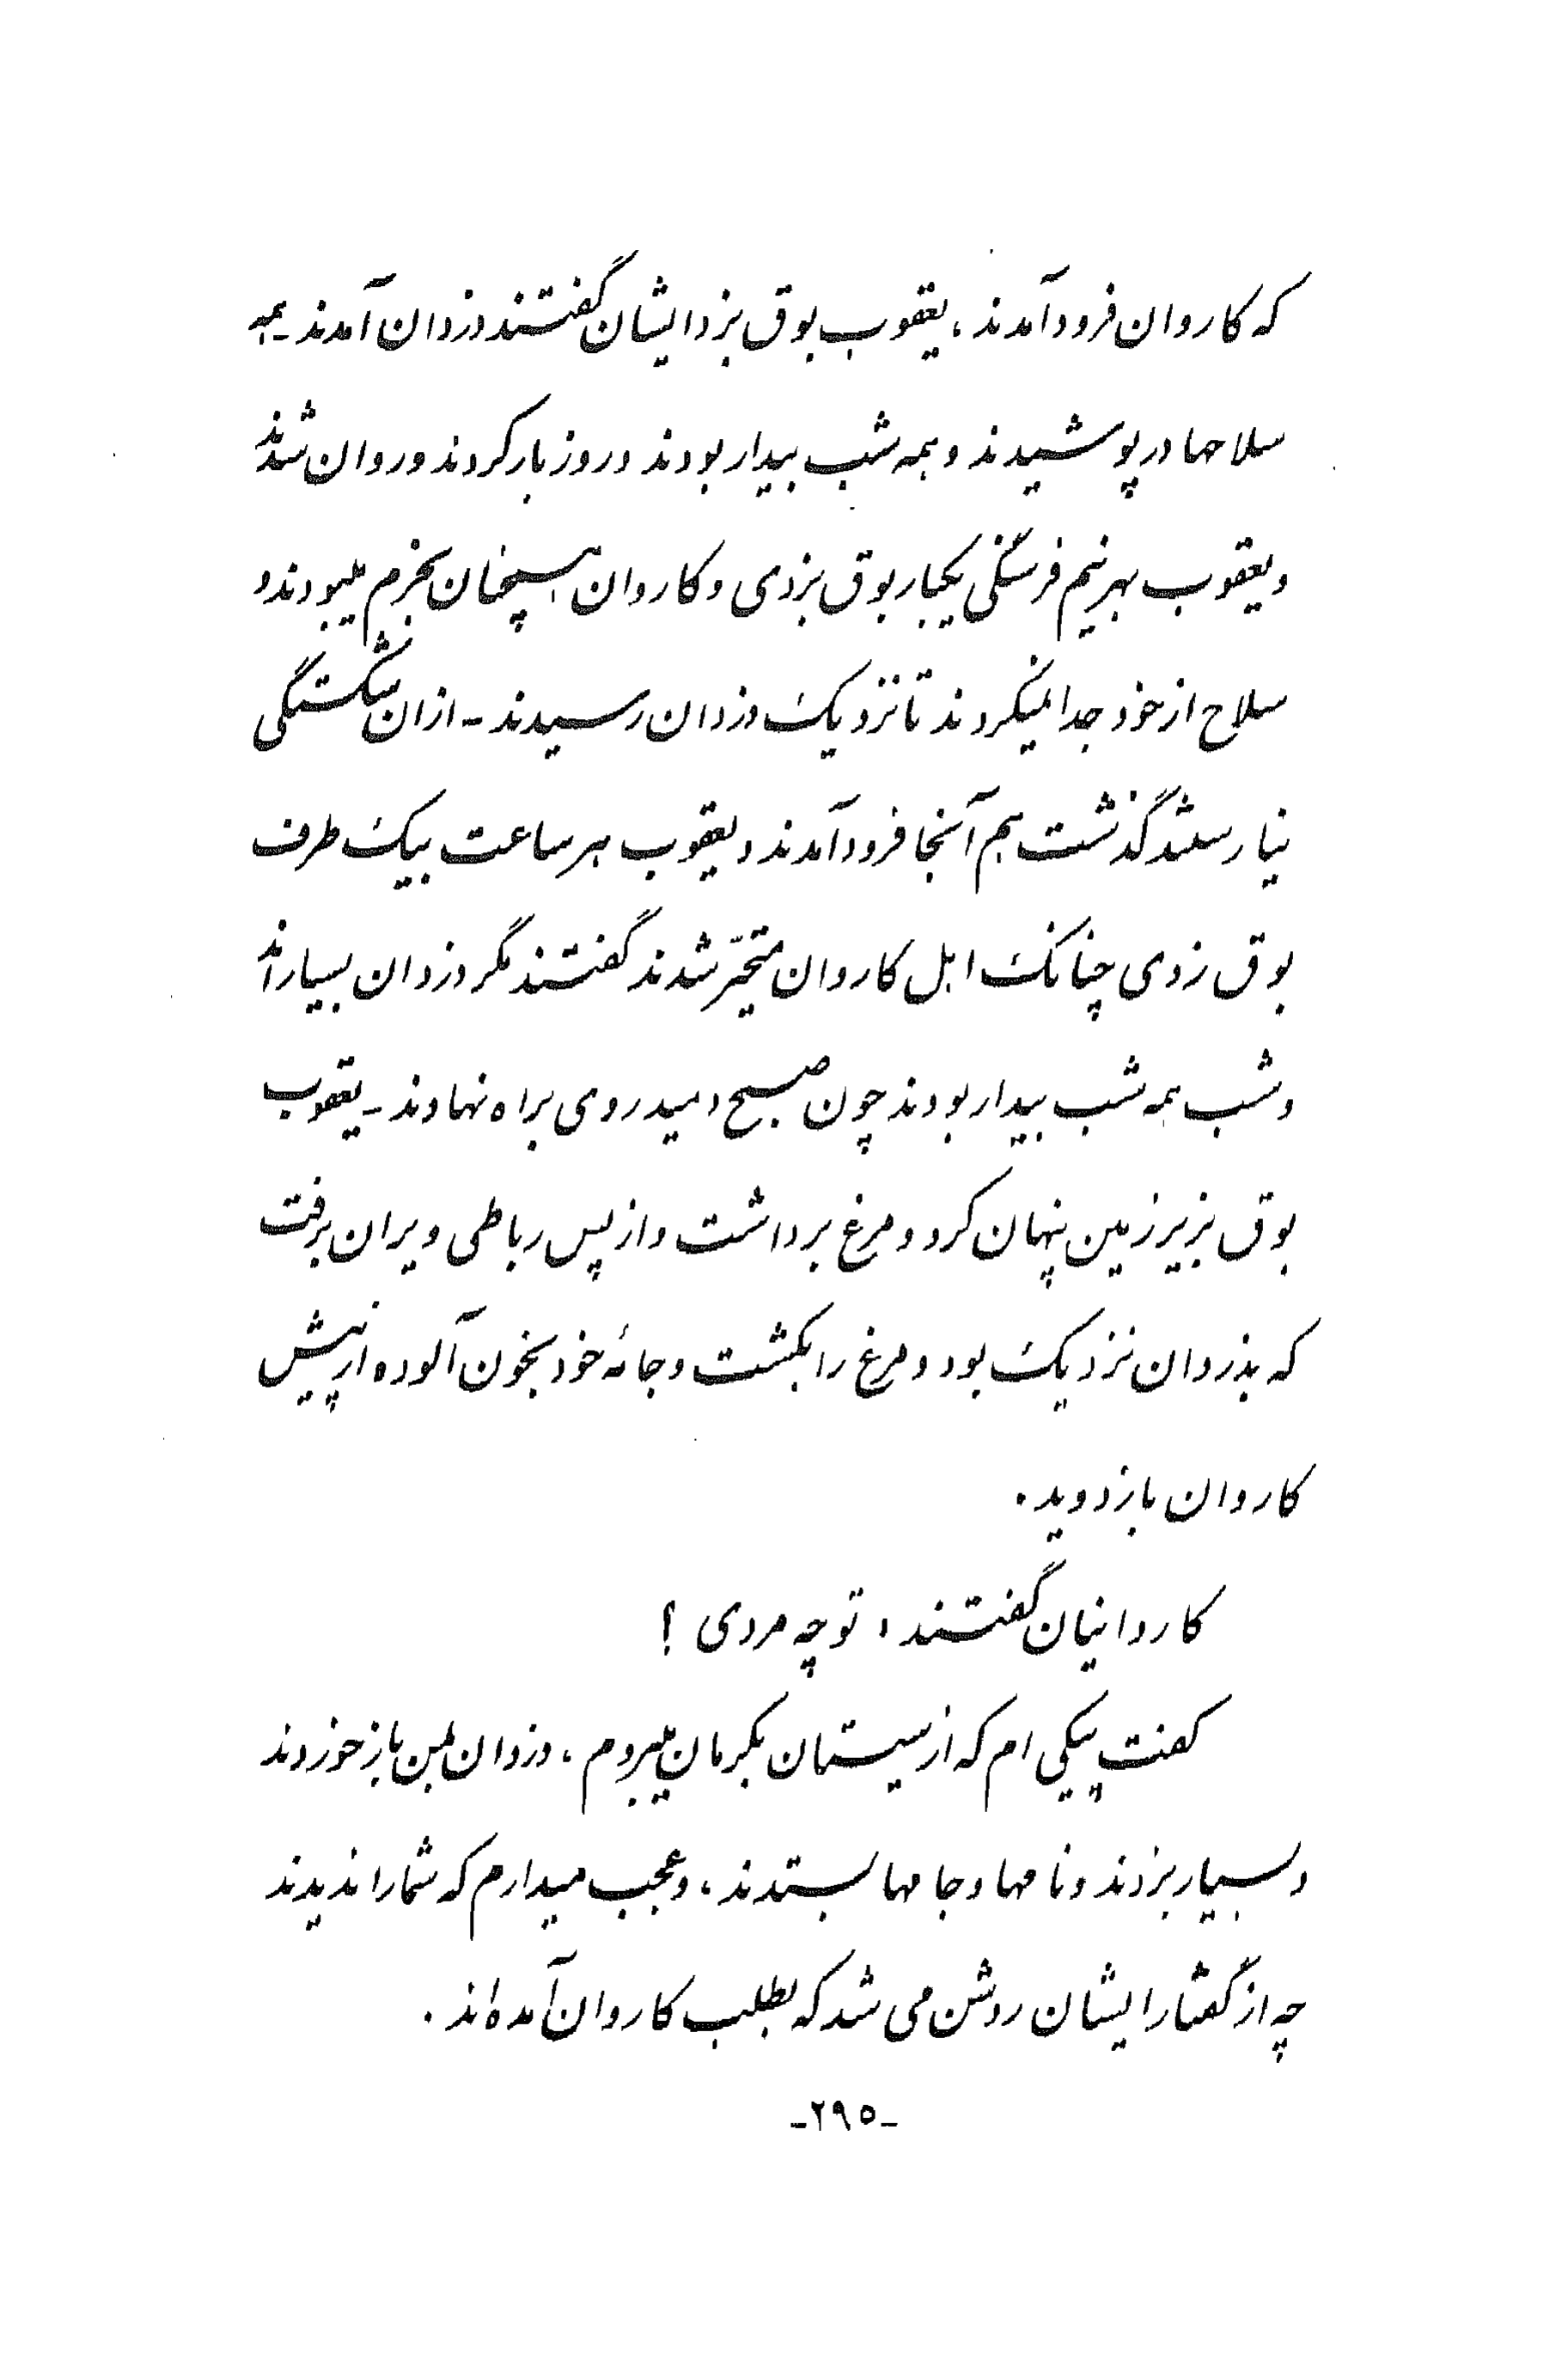 که کاروان فرود آمدند، یعقوب بوق بزد ایشان گفتند دزدان آمدند ـ همه
سلاحها در پوشیدند و همه شب بیدار بودند و روز بار کردند و روان شدند
و یعقوب بهر نیم فرسنگی یکبار بوق بزدی و کاروان همچنان بحزم میبودند و
سلاح از خود جدا نمیکردند تا نزدیک دزدان رسیدند ـ ازان شکستگی
نیارستند گذشت هم آنجا فرود آمدند و یعقوب هر ساعت بیک طرف
بوق زدی چنانک اهل کاروان متحیّر شدند گفتند مگر دزدان بسیاراند
و شب همه شب بیدار بودند چون صبح دمید روی براه نهادند ـ یعقوب
بوق بزیر زمین پنهان کرد و مرغ برداشت و از پس رباطی ویران برفت
که بدزدان نزدیک بود و مرغ را بکشت و جامهٔ خود بخون آلوده از پیش
کاروان باز دوید.
کاروانیان گفتند، تو چه مردی ؟
گفت پیکی ام که از سیستان بکرمان میروم، دزدان بمن باز خوردند
و بسیار بزدند و نامها و جامها بستدند، و عجب میدارم که شما را ندیدند
چه از گفتار ایشان روشن می شد که بطلب کاروان آمده‌اند.
ـ۲۹۵ـ